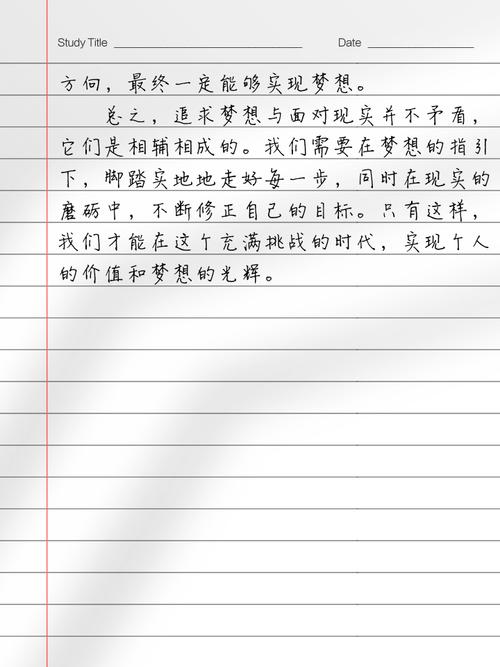 Study Title Date
方向，最终一定能够实现梦想。
总之，追求梦想与面对现实并不矛盾，
它们是相辅相成的。我们需要在梦想的指引
下，脚踏实地地走好每一步，同时在现实的
磨砺中，不断修正自己的目标。只有这样，
我们才能在这个充满挑战的时代，实现个人
的价值和梦想的光辉。